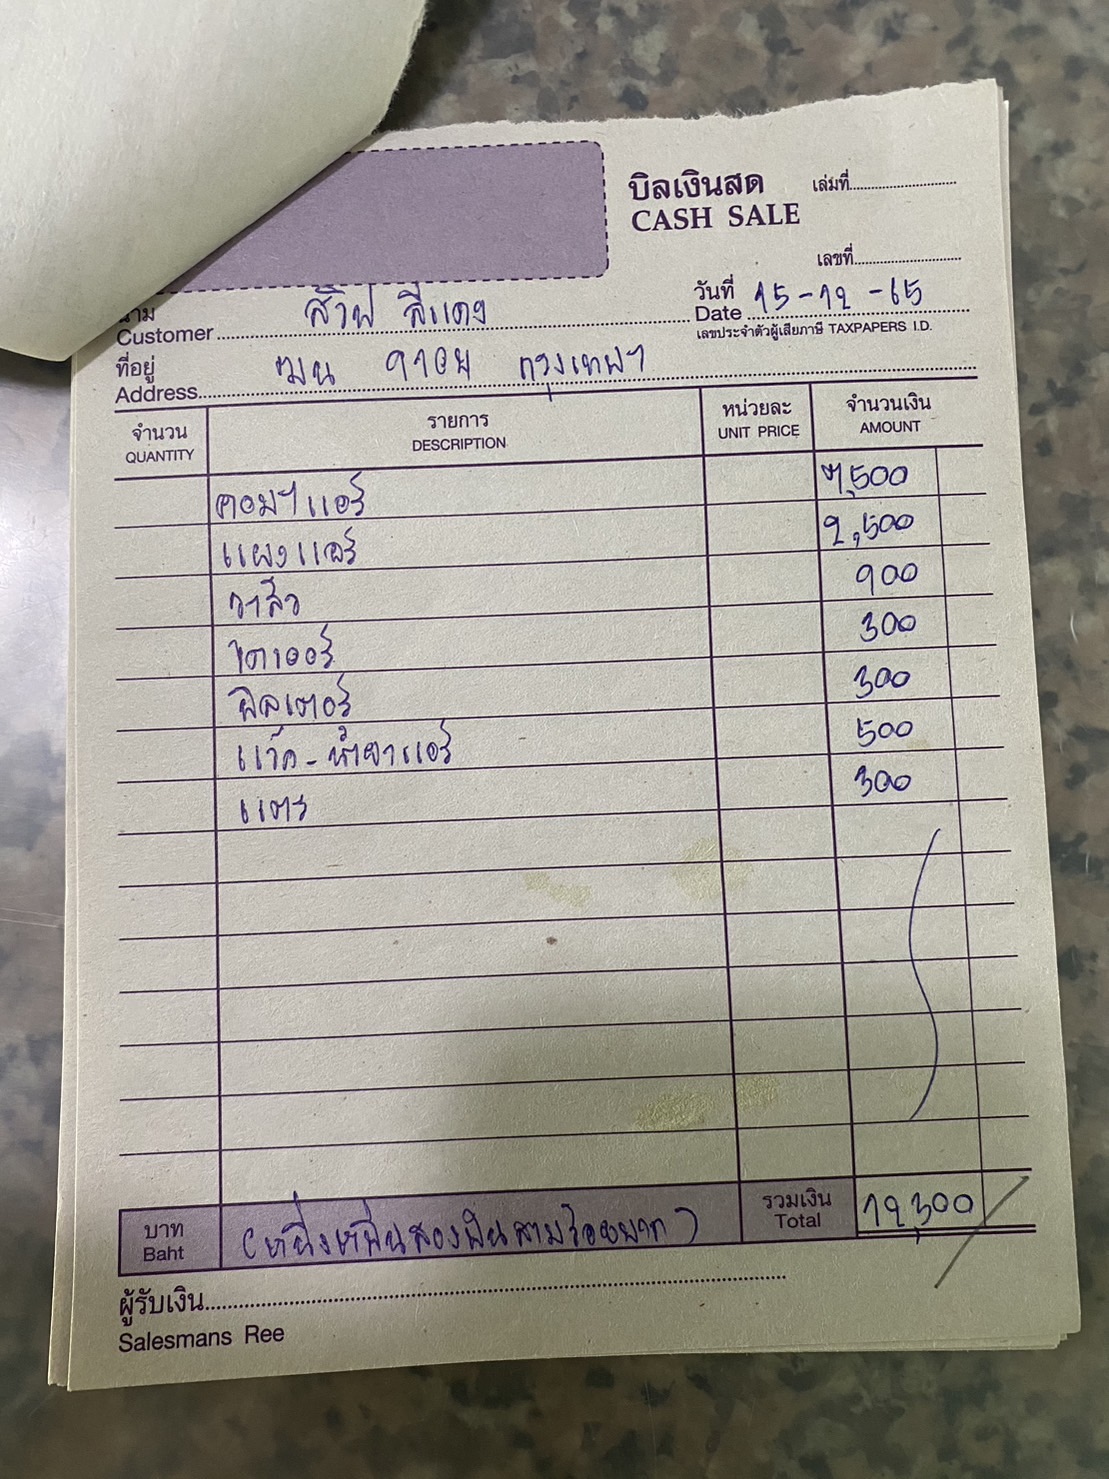 บิลเงินสด เล่มที่
CASH SALE
เลขที่
นาม
Customer สวิฟ สีแดง
วันที่
Date 15-12-65
เลขประจำตัวผู้เสียภาษี TAXPAPERS I.D.
ที่อยู่
Address ฆน กรุงเทพฯ
จำนวน รายการ หน่วยละ จำนวนเงิน
QUANTITY DESCRIPTION UNIT PRICE AMOUNT
คอมฯแอร์ 7,500
แผงแอร์ 2,500
วาล์ว 900
ไดเออร์ 300
ฟิลเตอร์ 300
แว๊ค-น้ำยาแอร์ 500
แตร 300
บาท (หนึ่งหมื่นสองพันสามร้อยบาท) รวมเงิน 12,300
Baht Total
ผู้รับเงิน
Salesmans Ree